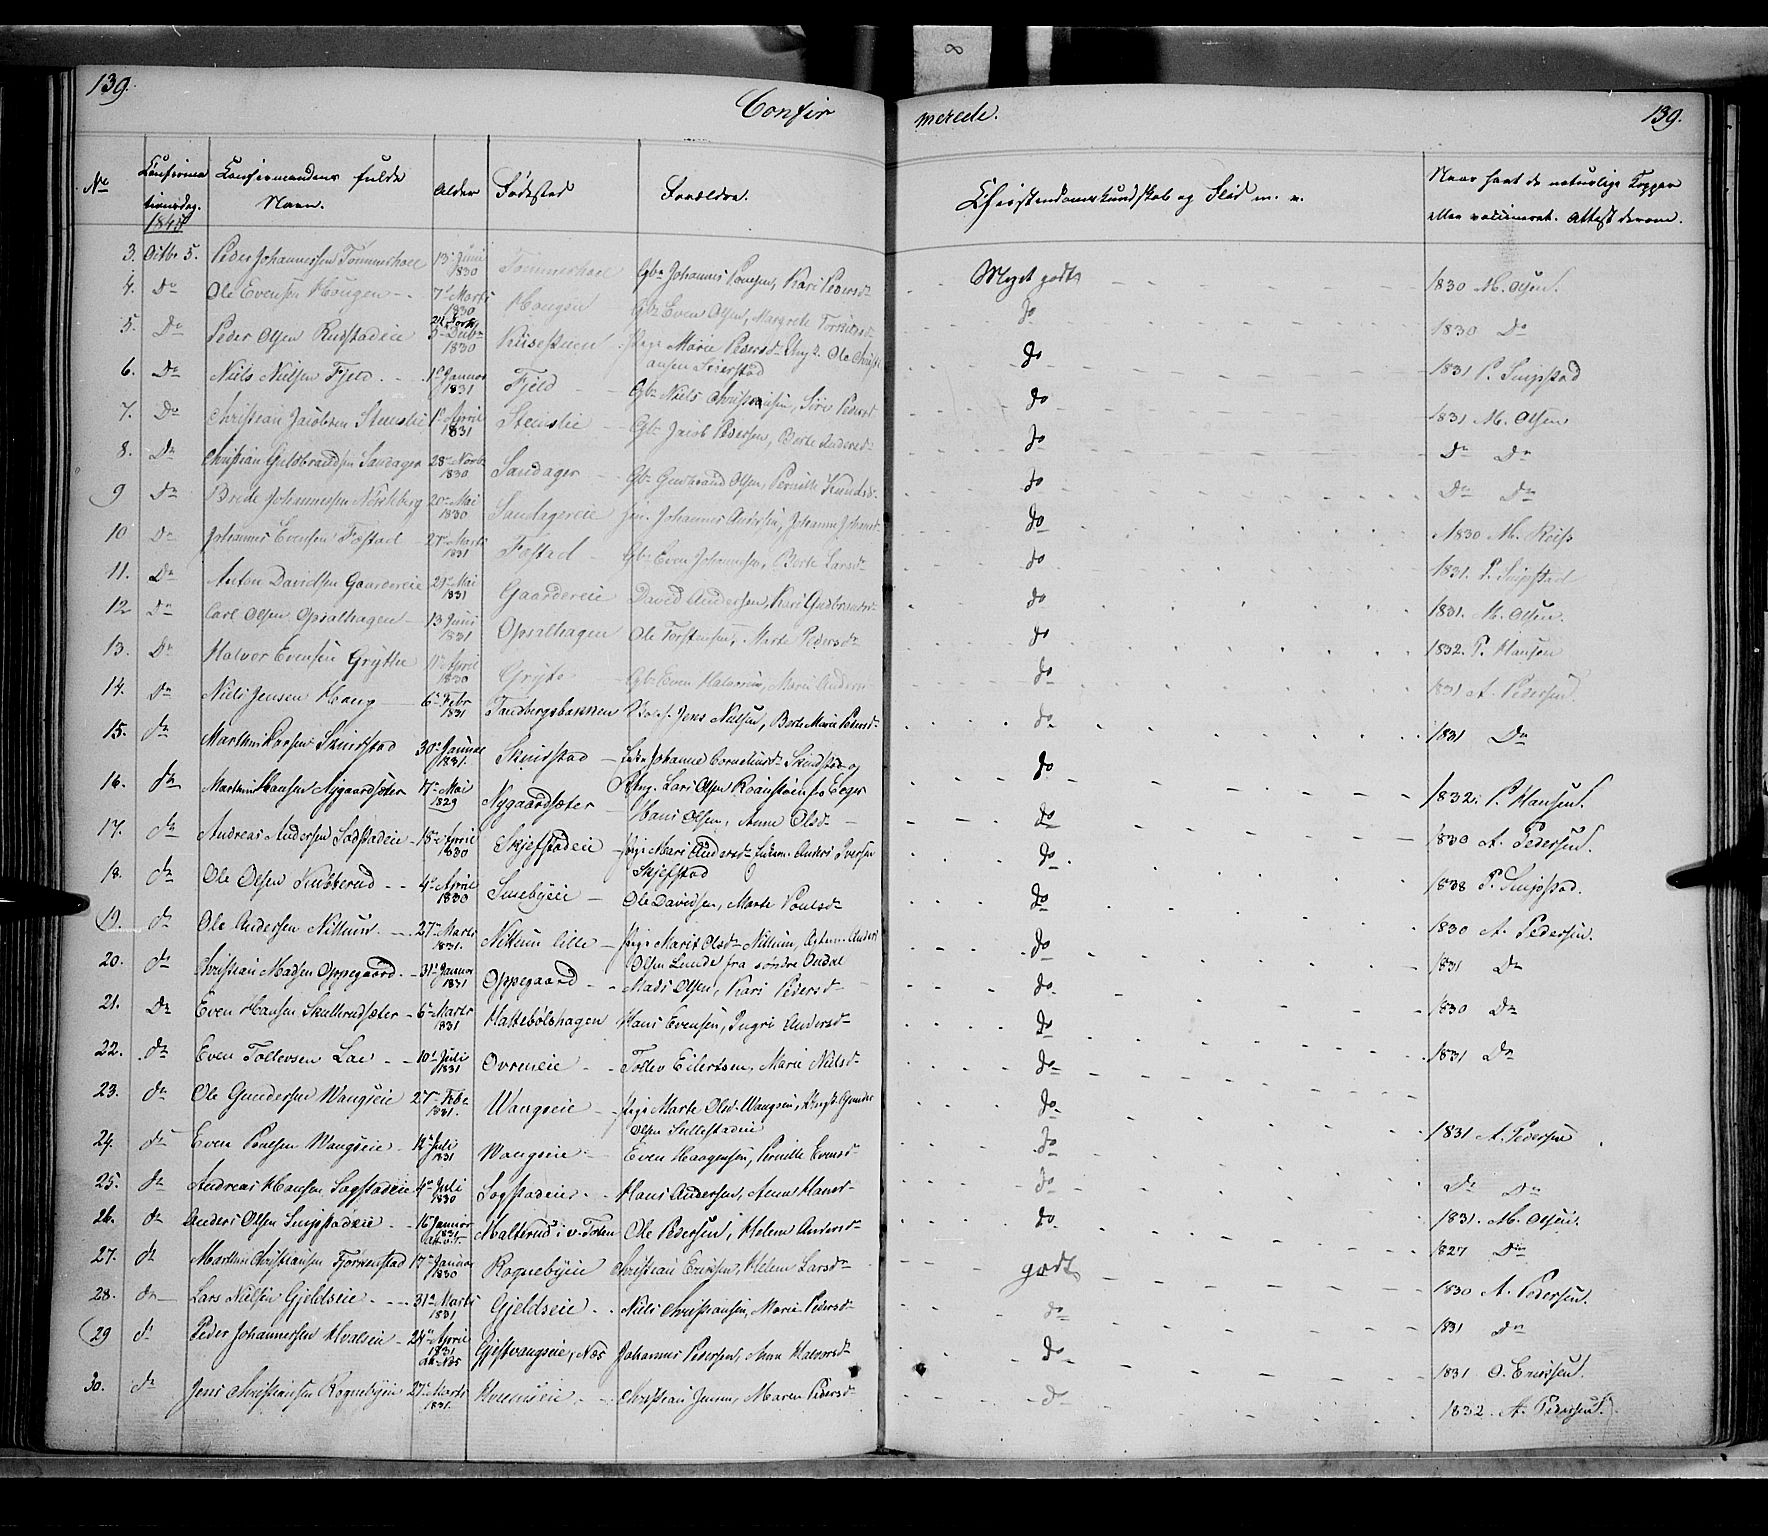 139.
Confir
merede.
139.
8
No
Confirma
tionsdag.
1845
Confirmandens fulde
Navn.
Alder
Fødested
Forældre.
Christendomskundskab og Flid m. v.
Naar havt de naturlige Kopper
eller vaccineret. Attest derom.
3. Octbr 5. Peder Johannessen Tømmerhoel 13 Juni 1830 Tømmerhoel Gbr Johannes Poulsen, Kari Pedersd. Meget godt 1830 M. Olsen.
4. Do Ole Evensen Hougen 7 Marts 1830 Hougen Gbr Even Olsen, Margrete do 1830 Do
5. Do Peder Olsen Rudstadeie 5 Decbr 1830 Pige Marie Pedersd. Ungk. Ole Christi
ansen Seierstad do 1831 P. Snipstad
6. Do Niels Nielsen Fjeld 1 Januar 1831 Fjeld Gbr Niels Christiansen, Siri Pedersd do 1831 M. Olsen
7. Do Christian Jacobsen Stenslie 1 April 1831 Stenslie Gbr Jacob Pedersen, Berte Andersd. do Do Do
8. Do Christian Guldbrandsen Sandager 28 Novbr 1830 Sandager Gbr Gudbrand Olsen, Pernille Knudsd. do Do Do
9 Do Brede Johannessen 20 Mai 1830 Sandagereie Johannes Andersen, Johanne Johansd do 1830 M.
10 Do Johannes Evensen Fæstad 27 Marts 1831 Fæstad Gbr Even Johannesen, Berte Larsd. do 1831. P. Snipstad
11. Do Anton Davidsen Gaardereie 21 Mai 1831 Gaardereie David Andersen, Kari Gudbrandsd. do 1831. M. Olsen.
12 Do Carl Olsen Opsalhagen 13 Juni 1831 Opsalhagen Ole Torstensen, Marte Pedersd. do 1832. P. Hansen
13. Do Halvor Evensen Grytte 11 April 1830 Gryte Gbr Even Halvorsen, Marie Andersd do 1831 A. Pedersen.
14. Do Niels Jensen Houg 6 Febr 1831 Sandbergsbakken Jens Nielsen, Berte Marie Pedersd. do 1831 Do
15. do Marthin Larsen Skindstad 30 Januar 1831. Skindstad Johanne Corneliusd. Skindstad og
Lars Olsen fra Eeger do 1832. P. Hansen.
16. do Marthin Hansen Nygaardsæter 17 Mai 1829 Nygaardsæter Hans Olsen, Anne Olsd. do 1830 A. Pedersen.
17. do Andreas Andersen 15 April 1830 Skjefstadeie pige Mari Andersd. Anders Iversen
Skjefstad do 1838 P. Snipstad.
18. do Ole Olsen Knubberud 4 April 1830 Smebyeie Ole Davidsen, Marte Poulsd. do 1830 A. Pedersen.
19. do Ole Andersen Nittum 27 Marts 1831. Nittum lille pige Marit Olsd. Nittum, Anders
Olsen Lunde fra søndre Audal do 1831 Do
20. do Christian Madsen Oppegaard 31 Januar 1831 Oppegaard Mads Olsen, Kari Pedersd. do 1830 Do
21. Do Even Hansen Skullerudsæter 6 Marts 1831 Hattebølshagen Hans Evensen, Ingri Andersd. do 1831 Do
22. do Even Tollevsen Lae 10 Juli 1831 Ovrneie Tollev Eilertsen, Marie Nielsd. do
23. do Ole Gundersen Wangseie 27 Febr 1831. Wangseie pige Marte Olsd. Wangseie, Ungk. Gunder
Olsen Sillestadeie do 1831 A. Pedersen
24. do Even Poulsen Wangseie 12 Juli 1831 Wangseie Even Haagensen, Pernille Evensd. do Do Do
25. do Andreas Hansen Sogstadeie 4 Juli 1830 Sogstadeie Hans Andersen, Anne Hansd. do 1831. M. Olsen.
26. do Anders Olsen Snipstadeie 16 Januar 1831 Att. v. T. Malterud i v. Toten Ole Pedersen, Helene Andersd do 1827 Do
27. do Marthin Christiansen Fjørkenstad 17 Januar 1830 Rognebyeie Christian Eriksen, Helene Larsd. godt 1830 A. Pedersen.
28. do Lars Nielsen Gjeldseie 31 Marts 1831 Gjeldseie Niels Christiansen, Marie Pedersd. do 1831 Do
29 do Peder Johannessen Hvalseie 24 April 1831 Att. Næs Gjestvangseie, Næs Johannes Pedersen, Anne Halvorsd. do 1831 O. Eriksen.
30. do Jens Christiansen Rognebyeie 27 Marts 1831. Hveemseie Christian Jensen, Maren Pedersd. do 1832. A. Pedersen.